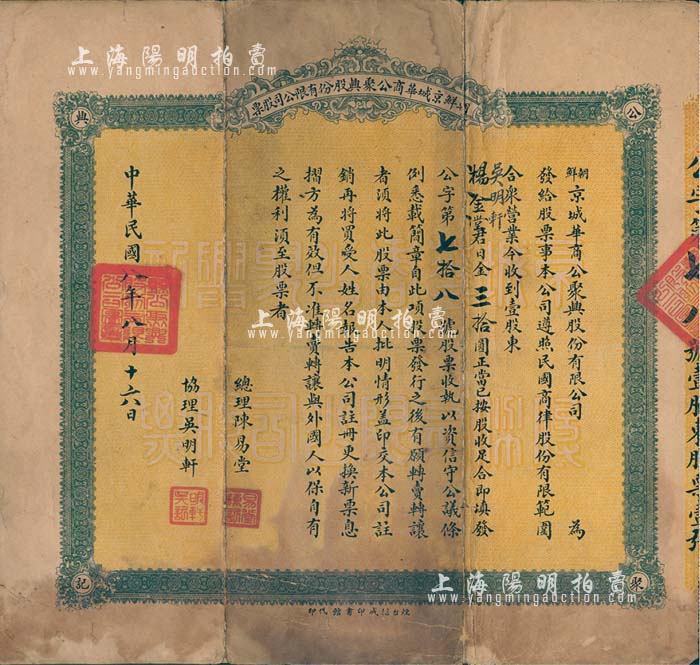 上海陽明拍賣
www.yangmingauction.com
朝鮮京城華商公聚興股份有限公司股票
公
聚
興
記
朝鮮京城華商公聚興股份有限公司 為
發給股票事本公司遵照民國商律股份有限範圍
合衆營業今收到壹股東
吳明軒
楊金棠君日金三拾圓正當已按股收足合即填發
公字第七拾八號股票收執以資信守公議條
例悉載簡章自此項股票發行之後有願轉賣轉讓
者須將此股票由本人批明情形盖印交本公司註
銷再將買受人姓名報告本公司註冊更換新票息
摺方為有效但不准轉賣轉讓與外國人以保自有
之權利須至股票者
總理陳易堂
協理吳明軒
中華民國八年八月十六日
上海陽明拍賣
www.yangmingauction.com
上海陽明拍賣
www.yangmingauction.com
烟台誠成印書館代印